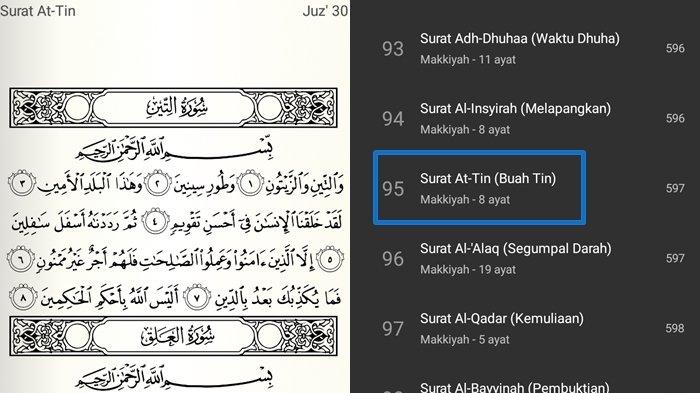 Surat At-Tin
Juz' 30
سُورَةُ التِّينِ
بِسْمِ ٱللَّهِ ٱلرَّحْمَٰنِ ٱلرَّحِيمِ
وَٱلتِّينِ وَٱلزَّيْتُونِ ١ وَطُورِ سِينِينَ ٢ وَهَٰذَا ٱلْبَلَدِ ٱلْأَمِينِ ٣
لَقَدْ خَلَقْنَا ٱلْإِنسَٰنَ فِىٓ أَحْسَنِ تَقْوِيمٍ ٤ ثُمَّ رَدَدْنَٰهُ أَسْفَلَ سَٰفِلِينَ
٥ إِلَّا ٱلَّذِينَ ءَامَنُوا۟ وَعَمِلُوا۟ ٱلصَّٰلِحَٰتِ فَلَهُمْ أَجْرٌ غَيْرُ مَمْنُونٍ ٦
فَمَا يُكَذِّبُكَ بَعْدُ بِٱلدِّينِ ٧ أَلَيْسَ ٱللَّهُ بِأَحْكَمِ ٱلْحَٰكِمِينَ ٨
سُورَةُ العَلَقِ
بِسْمِ ٱللَّهِ ٱلرَّحْمَٰنِ ٱلرَّحِيمِ
93 Surat Adh-Dhuhaa (Waktu Dhuha) 596
Makkiyah - 11 ayat
94 Surat Al-Insyirah (Melapangkan) 596
Makkiyah - 8 ayat
95 Surat At-Tin (Buah Tin) 597
Makkiyah - 8 ayat
96 Surat Al-'Alaq (Segumpal Darah) 597
Makkiyah - 19 ayat
97 Surat Al-Qadar (Kemuliaan) 598
Makkiyah - 5 ayat
Surat Al-Bayyinah (Pembuktian)